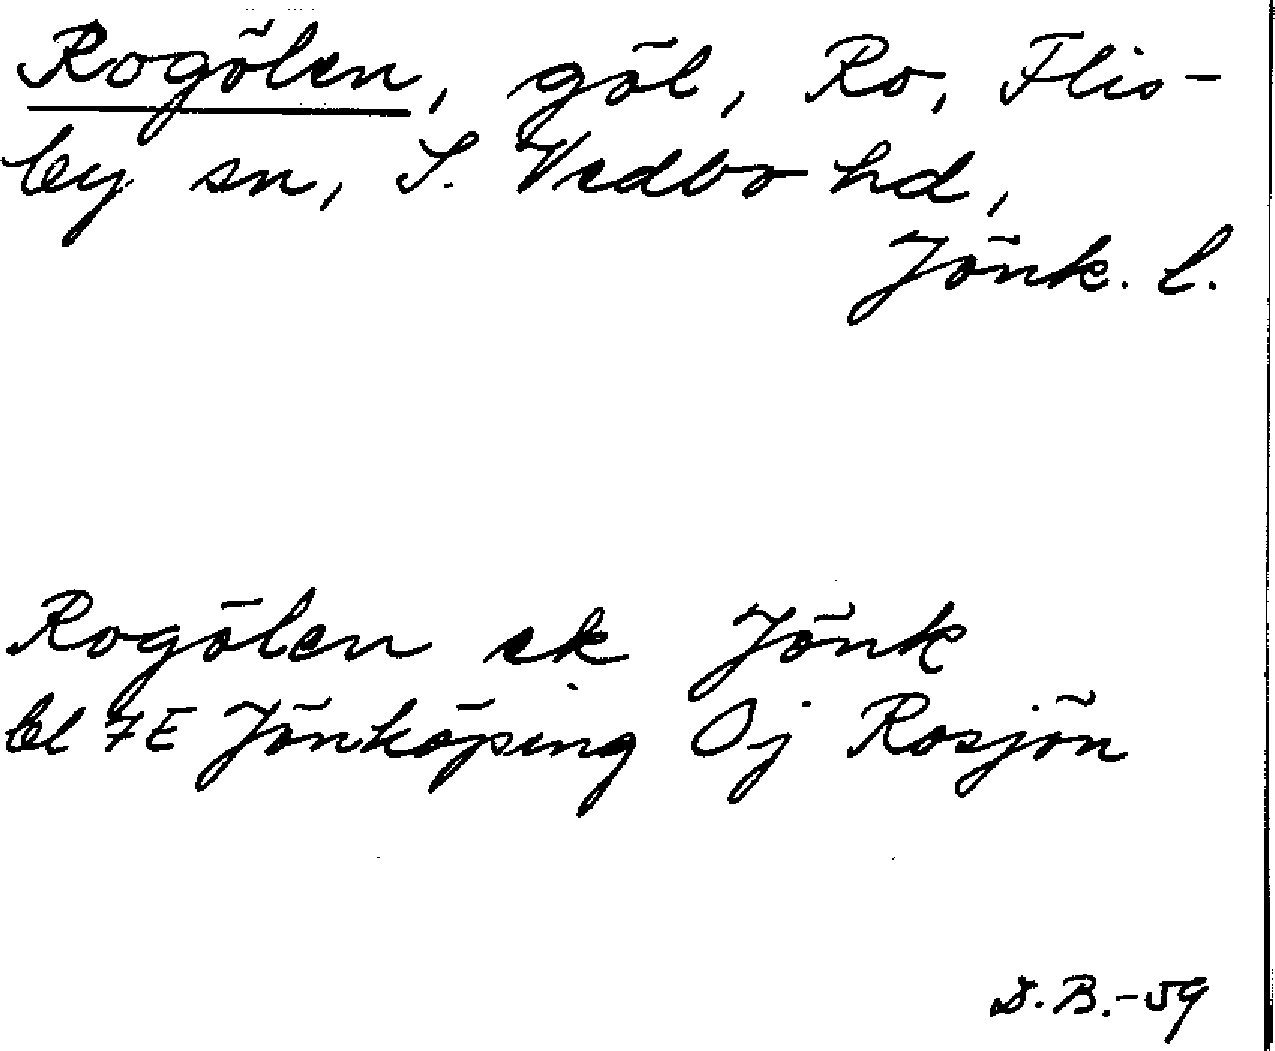 Rogölen, göl, Ro, Flis-
by sn, S. Vedbo hd,
Jönk. l.
Rogölen ek Jönk
bl 7E Jönköping Oj Rosjön
D.B.-59